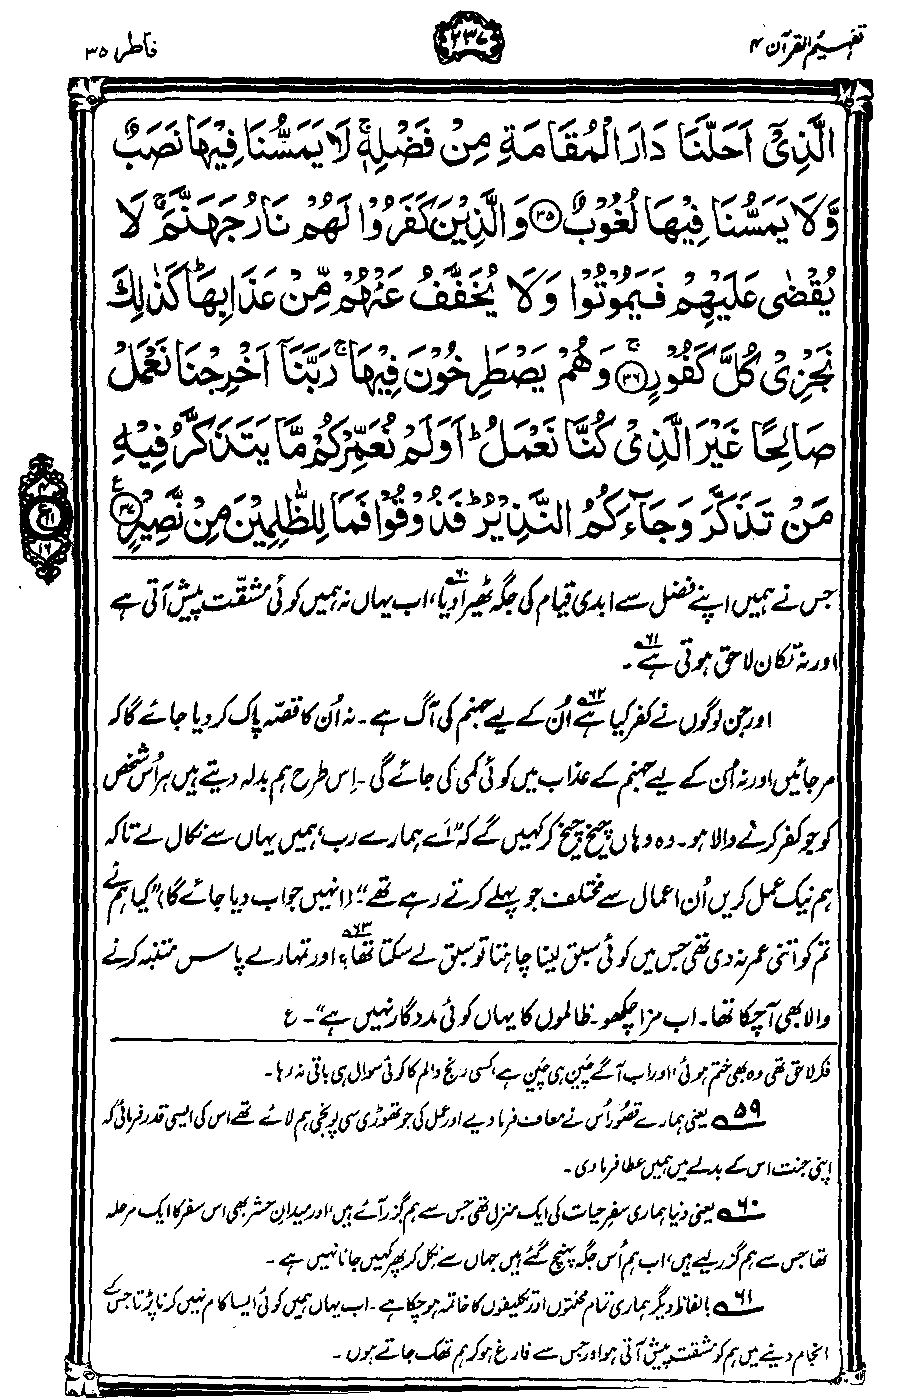 تفہیم القرآن ۴
۲۳۷
فاطر ۳۵
الَّذِىْۤ اَحَلَّنَا دَارَ الْمُقَامَةِ مِنْ فَضْلِهٖ ۚ لَا يَمَسُّنَا فِيْهَا نَصَبٌ
وَّلَا يَمَسُّنَا فِيْهَا لُغُوْبٌ ﴿۳۵﴾ وَالَّذِيْنَ كَفَرُوْا لَهُمْ نَارُ جَهَنَّمَ ۚ لَا
يُقْضٰى عَلَيْهِمْ فَيَمُوْتُوْا وَلَا يُخَفَّفُ عَنْهُمْ مِّنْ عَذَابِهَا ؕ كَذٰلِكَ
نَجْزِىْ كُلَّ كَفُوْرٍ ﴿۳۶﴾ ۚ وَهُمْ يَصْطَرِخُوْنَ فِيْهَا ۚ رَبَّنَاۤ اَخْرِجْنَا نَعْمَلْ
صَالِحًا غَيْرَ الَّذِىْ كُنَّا نَعْمَلُ ؕ اَوَلَمْ نُعَمِّرْكُمْ مَّا يَتَذَكَّرُ فِيْهِ
مَنْ تَذَكَّرَ وَجَآءَكُمُ النَّذِيْرُ ؕ فَذُوْقُوْا فَمَا لِلظّٰلِمِيْنَ مِنْ نَّصِيْرٍ ﴿۳۷﴾ ع
جس نے ہمیں اپنے فضل سے ابدی قیام کی جگہ ٹھیرا دیا،۶۰ اب یہاں نہ ہمیں کوئی مشقّت پیش آتی ہے
اور نہ تکان لاحق ہوتی ہے۶۱۔
اور جن لوگوں نے کفر کیا ہے۶۲ اُن کے لیے جہنم کی آگ ہے۔ نہ اُن کا قصّہ پاک کر دیا جائے گا کہ
مر جائیں اور نہ اُن کے لیے جہنم کے عذاب میں کوئی کمی کی جائے گی۔ اِس طرح ہم بدلہ دیتے ہیں ہر اُس شخص
کو جو کفر کرنے والا ہو۔ وہ وہاں چیخ چیخ کر کہیں گے کہ ”اَے ہمارے رب، ہمیں یہاں سے نکال لے تاکہ
ہم نیک عمل کریں اُن اعمال سے مختلف جو پہلے کرتے رہے تھے“۔ (انہیں جواب دیا جائے گا) ”کیا ہم نے
تم کو اتنی عمر نہ دی تھی جس میں کوئی سبق لینا چاہتا تو سبق لے سکتا تھا؟۶۳ اور تمہارے پاس متنبہ کرنے
والا بھی آچکا تھا۔ اب مزا چکھو۔ ظالموں کا یہاں کوئی مددگار نہیں ہے“۔ ع
فکر لاحق تھی وہ بھی ختم ہوئی، اور اب آگے چَین ہی چَین ہے، کسی رنج و الم کا کوئی سوال ہی باقی نہ رہا۔
۵۹ یعنی ہمارے قصُور اُس نے معاف فرما دیے اور عمل کی جو تھوڑی سی پونجی ہم لائے تھے اس کی ایسی قدر فرمائی کہ
اپنی جنت اس کے بدلے میں ہمیں عطا فرما دی۔
۶۰ یعنی دنیا ہماری سفرِ حیات کی ایک منزل تھی جس سے ہم گزر آئے ہیں، اور میدانِ حشر بھی اس سفر کا ایک مرحلہ
تھا جس سے ہم گزر لیے ہیں، اب ہم اُس جگہ پہنچ گئے ہیں جہاں سے نکل کر پھر کہیں جانا نہیں ہے۔
۶۱ بالفاظِ دیگر ہماری تمام محنتوں اور تکلیفوں کا خاتمہ ہو چکا ہے۔ اب یہاں ہمیں کوئی ایسا کام نہیں کرنا پڑتا جس کے
انجام دینے میں ہم کو مشقت پیش آتی ہو اور جس سے فارغ ہو کر ہم تھک جاتے ہوں۔